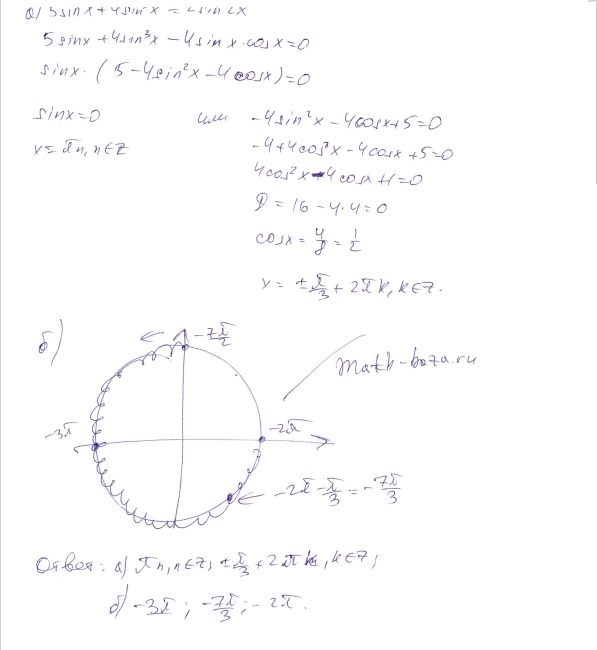 а) 5sinx+4sin³x = 4sin2x
5sinx+4sin³x-4sinx·cosx=0
sinx·(5-4sin²x-4cosx)=0
sinx=0 или -4sin²x-4cosx+5=0
x=πn, n∈Z -4+4cos²x-4cosx+5=0
4cos²x-4cosx+1=0
D=16-4·4=0
cosx=4/8=1/2
x=±π/3+2πk, k∈Z.
б)
-7π/2
math-baza.ru
-3π
-2π
-2π-π/3=-7π/3
Ответ: а) πn, n∈Z; ±π/3+2πk, k∈Z;
б) -3π; -7π/3; -2π.